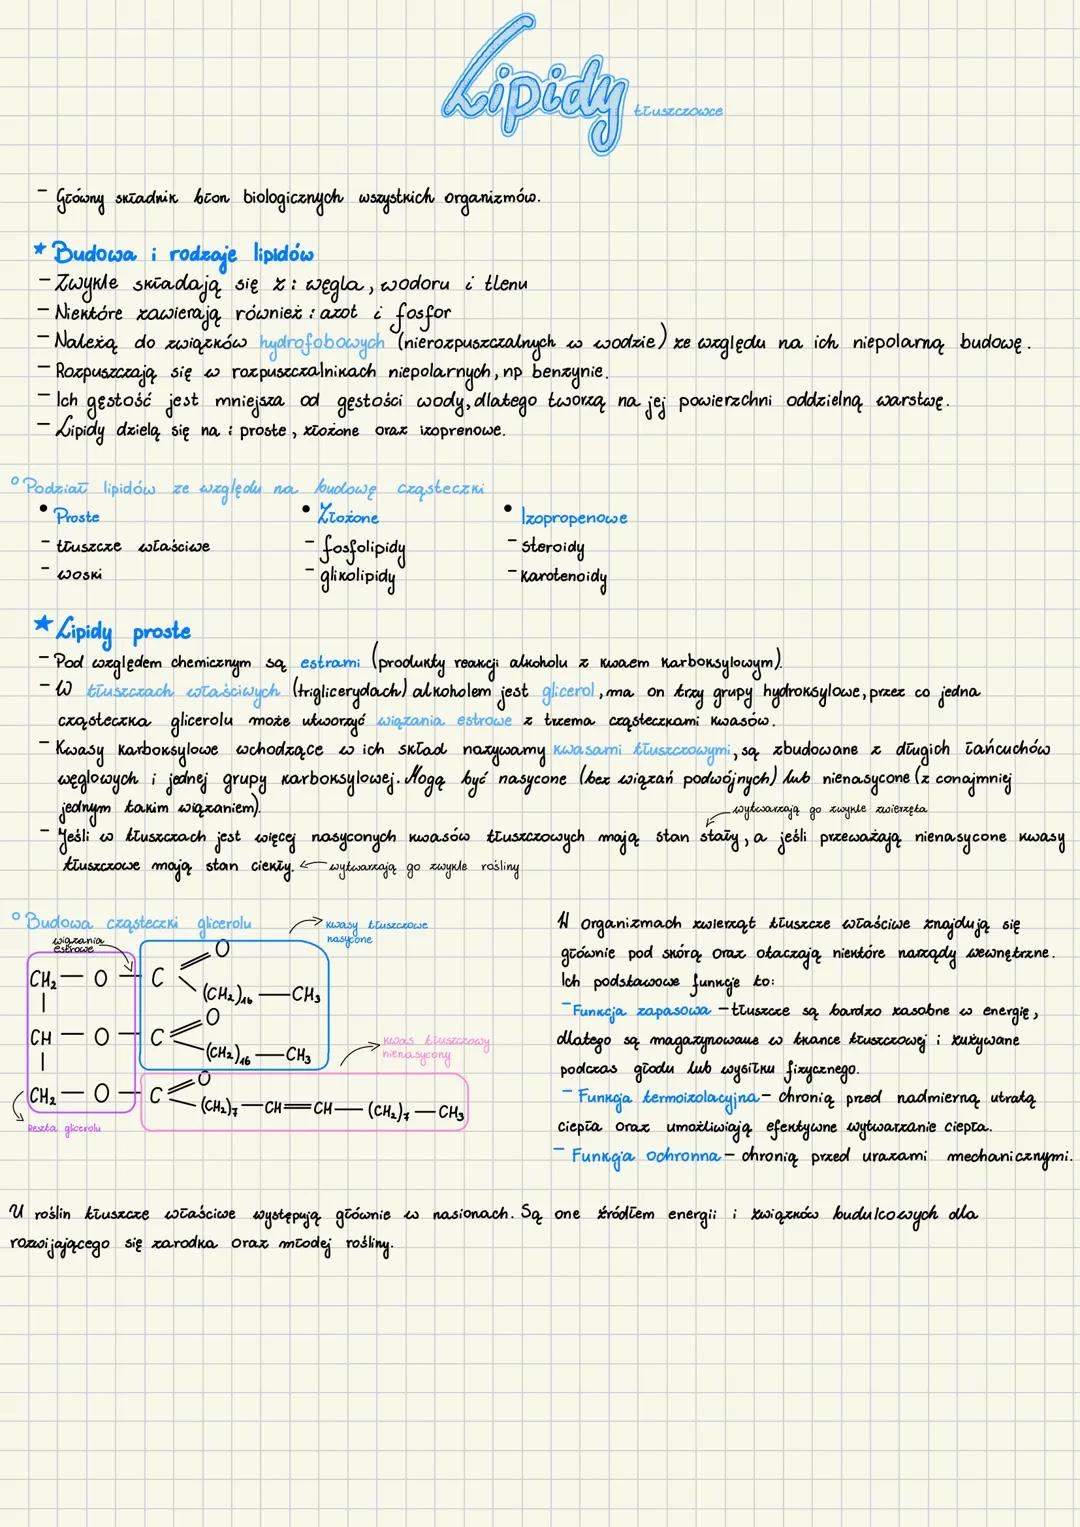 Lipidy
tłuszczowce
- Główny składnik błon biologicznych wszystkich organizmów.
* Budowa i rodzaje lipidów
- Zwykle składają się z: węgla, wodoru i tlenu
- Niektóre zawierają również: azot i fosfor
- Należą do związków hydrofobowych (nierozpuszczalnych w wodzie) ze względu na ich niepolarną budowę.
- Rozpuszczają się w rozpuszczalnikach niepolarnych, np benzynie.
- Ich gęstość jest mniejsza od gęstości wody, dlatego tworzą na jej powierzchni oddzielną warstwę.
- Lipidy dzielą się na: proste, złożone oraz izoprenowe.
° Podział lipidów ze względu na budowę cząsteczki
• Proste • Złożone • Izopropenowe
- tłuszcze właściwe - fosfolipidy - steroidy
- woski - glikolipidy - karotenoidy
★ Lipidy proste
- Pod względem chemicznym są estrami (produkty reakcji alkoholu z kwaem karboksylowym).
- W tłuszczach właściwych (triglicerydach) alkoholem jest glicerol, ma on trzy grupy hydroksylowe, przez co jedna
cząsteczka glicerolu może utworzyć wiązania estrowe z trzema cząsteczkami kwasów.
- Kwasy karboksylowe wchodzące w ich skład nazywamy kwasami tłuszczowymi, są zbudowane z długich łańcuchów
węglowych i jednej grupy karboksylowej. Mogą być nasycone (bez wiązań podwójnych) lub nienasycone (z conajmniej
jednym takim wiązaniem).
wytwarzają go zwykle zwierzęta
- Jeśli w tłuszczach jest więcej nasyconych kwasów tłuszczowych mają stan stały, a jeśli przeważają nienasycone kwasy
tłuszczowe mają stan ciekły. ← wytwarzają go zwykle rośliny
° Budowa cząsteczki glicerolu
wiązania
estrowe
kwasy tłuszczowe
nasycone
O
CH₂ — O — C
(CH₂)₁₆ — CH₃
O
CH — O — C
(CH₂)₁₆ — CH₃
kwas tłuszczowy
nienasycony
O
CH₂ — O — C
(CH₂)₇ — CH = CH — (CH₂)₇ — CH₃
Reszta glicerolu
W organizmach zwierząt tłuszcze właściwe znajdują się
głównie pod skórą oraz otaczają niektóre narządy wewnętrzne.
Ich podstawowe funkcje to:
- Funkcja zapasowa - tłuszcze są bardzo zasobne w energię,
dlatego są magazynowane w tkance tłuszczowej i zużywane
podczas głodu lub wysiłku fizycznego.
- Funkcja termoizolacyjna - chronią przed nadmierną utratą
ciepła oraz umożliwiają efektywne wytwarzanie ciepła.
- Funkcja ochronna - chronią przed urazami mechanicznymi.
U roślin tłuszcze właściwe występują głównie w nasionach. Są one źródłem energii i związków budulcowych dla
rozwijającego się zarodka oraz młodej rośliny.